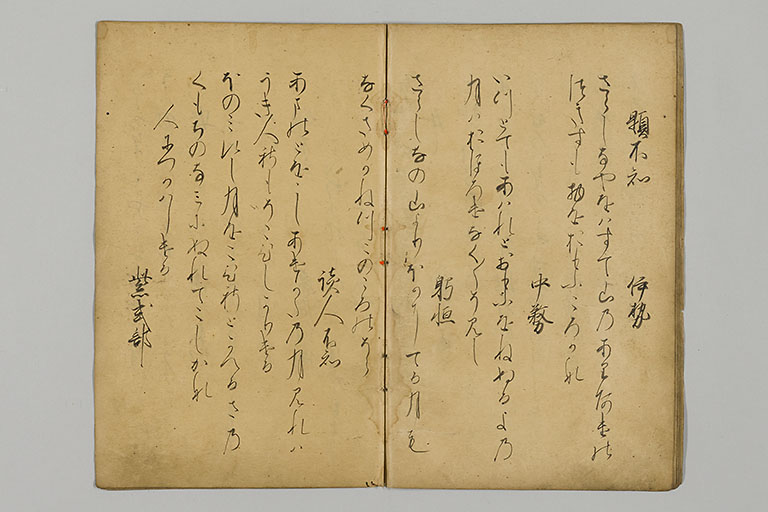 題不知
伊勢
さらしなやをはすて山のありあけの
つきすも物をおもふころかな
中務
いつとてもあはれとおもふをねぬるよの
月はおほろけなく〳〵そみし
躬恒
さらしなの山よりほかにてる月も
なくさめかねつこのころのそら
読人不知
あまのとをおしあけかたの月みれは
うき人しもそこひしかりける
ほのみえし月をこひしとかへるさの
くもちのなみにぬれてこしかな
人につかはしける
紫式部